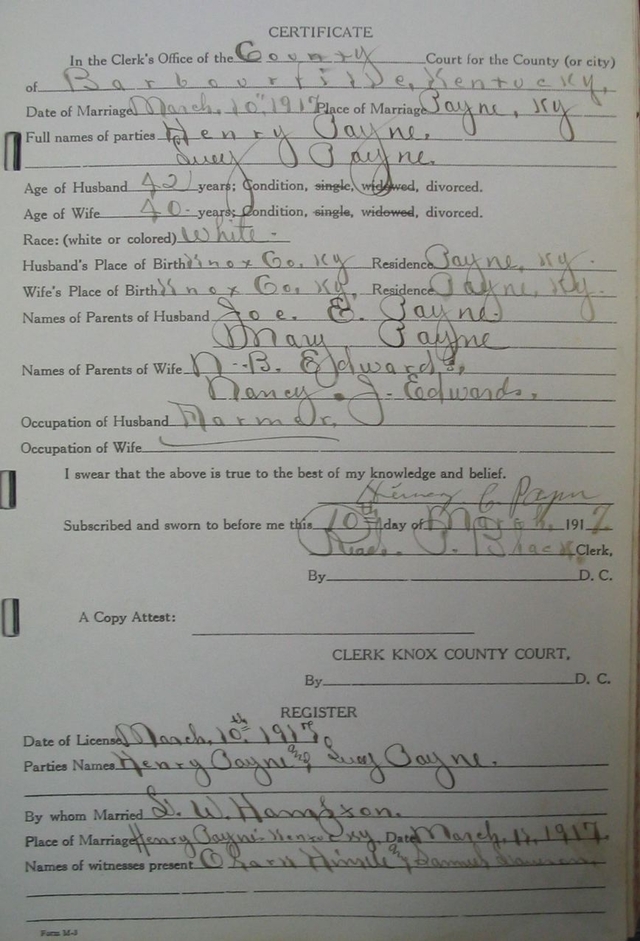 CERTIFICATE
In the Clerk's Office of the County Court for the County (or city)
of Barbourville, Kentucky,
Date of Marriage March, 10th 1917 Place of Marriage Payne, Ky
Full names of parties Henry Payne.
Lucy Payne.
Age of Husband 42 years; Condition, single, widowed, divorced.
Age of Wife 40 years; Condition, single, widowed, divorced.
Race: (white or colored) White.
Husband's Place of Birth Knox Co, Ky Residence Payne, Ky.
Wife's Place of Birth Knox Co, Ky, Residence Payne, Ky.
Names of Parents of Husband Joe. E. Payne.
Mary Payne
Names of Parents of Wife N. B. Edwards,
Nancy. J. Edwards.
Occupation of Husband Farmer,
Occupation of Wife
I swear that the above is true to the best of my knowledge and belief.
Henry C. Payn
Subscribed and sworn to before me this 10th day of March, 1917
Read. P. Black Clerk,
By D. C.
A Copy Attest:
CLERK KNOX COUNTY COURT.
By D. C.
REGISTER
Date of License March, 10th 1917,
Parties Names Henry Payne and Lucy Payne.
By whom Married W. Hampton.
Place of Marriage Henry Payne Date March, 1917
Names of witnesses present Hinkle &
Form M-3